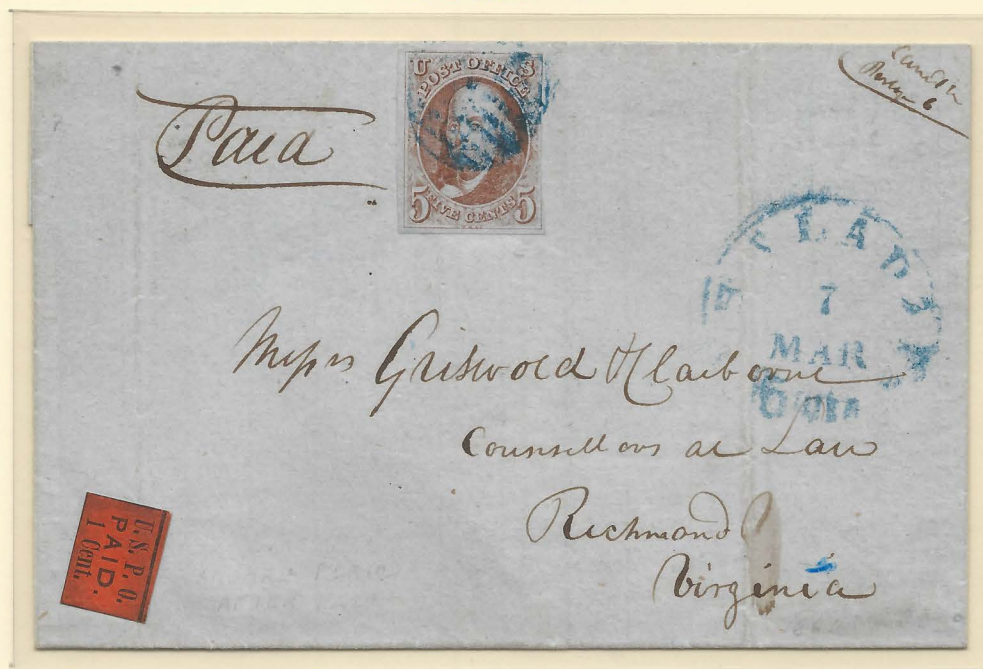 Paid
U S
POST OFFICE
5 FIVE CENTS 5
7
MAR
Messrs Griswold & Claiborne
Counsellors at Law
Richmond
Virginia
U.S.P.O.
PAID.
1 Cent.